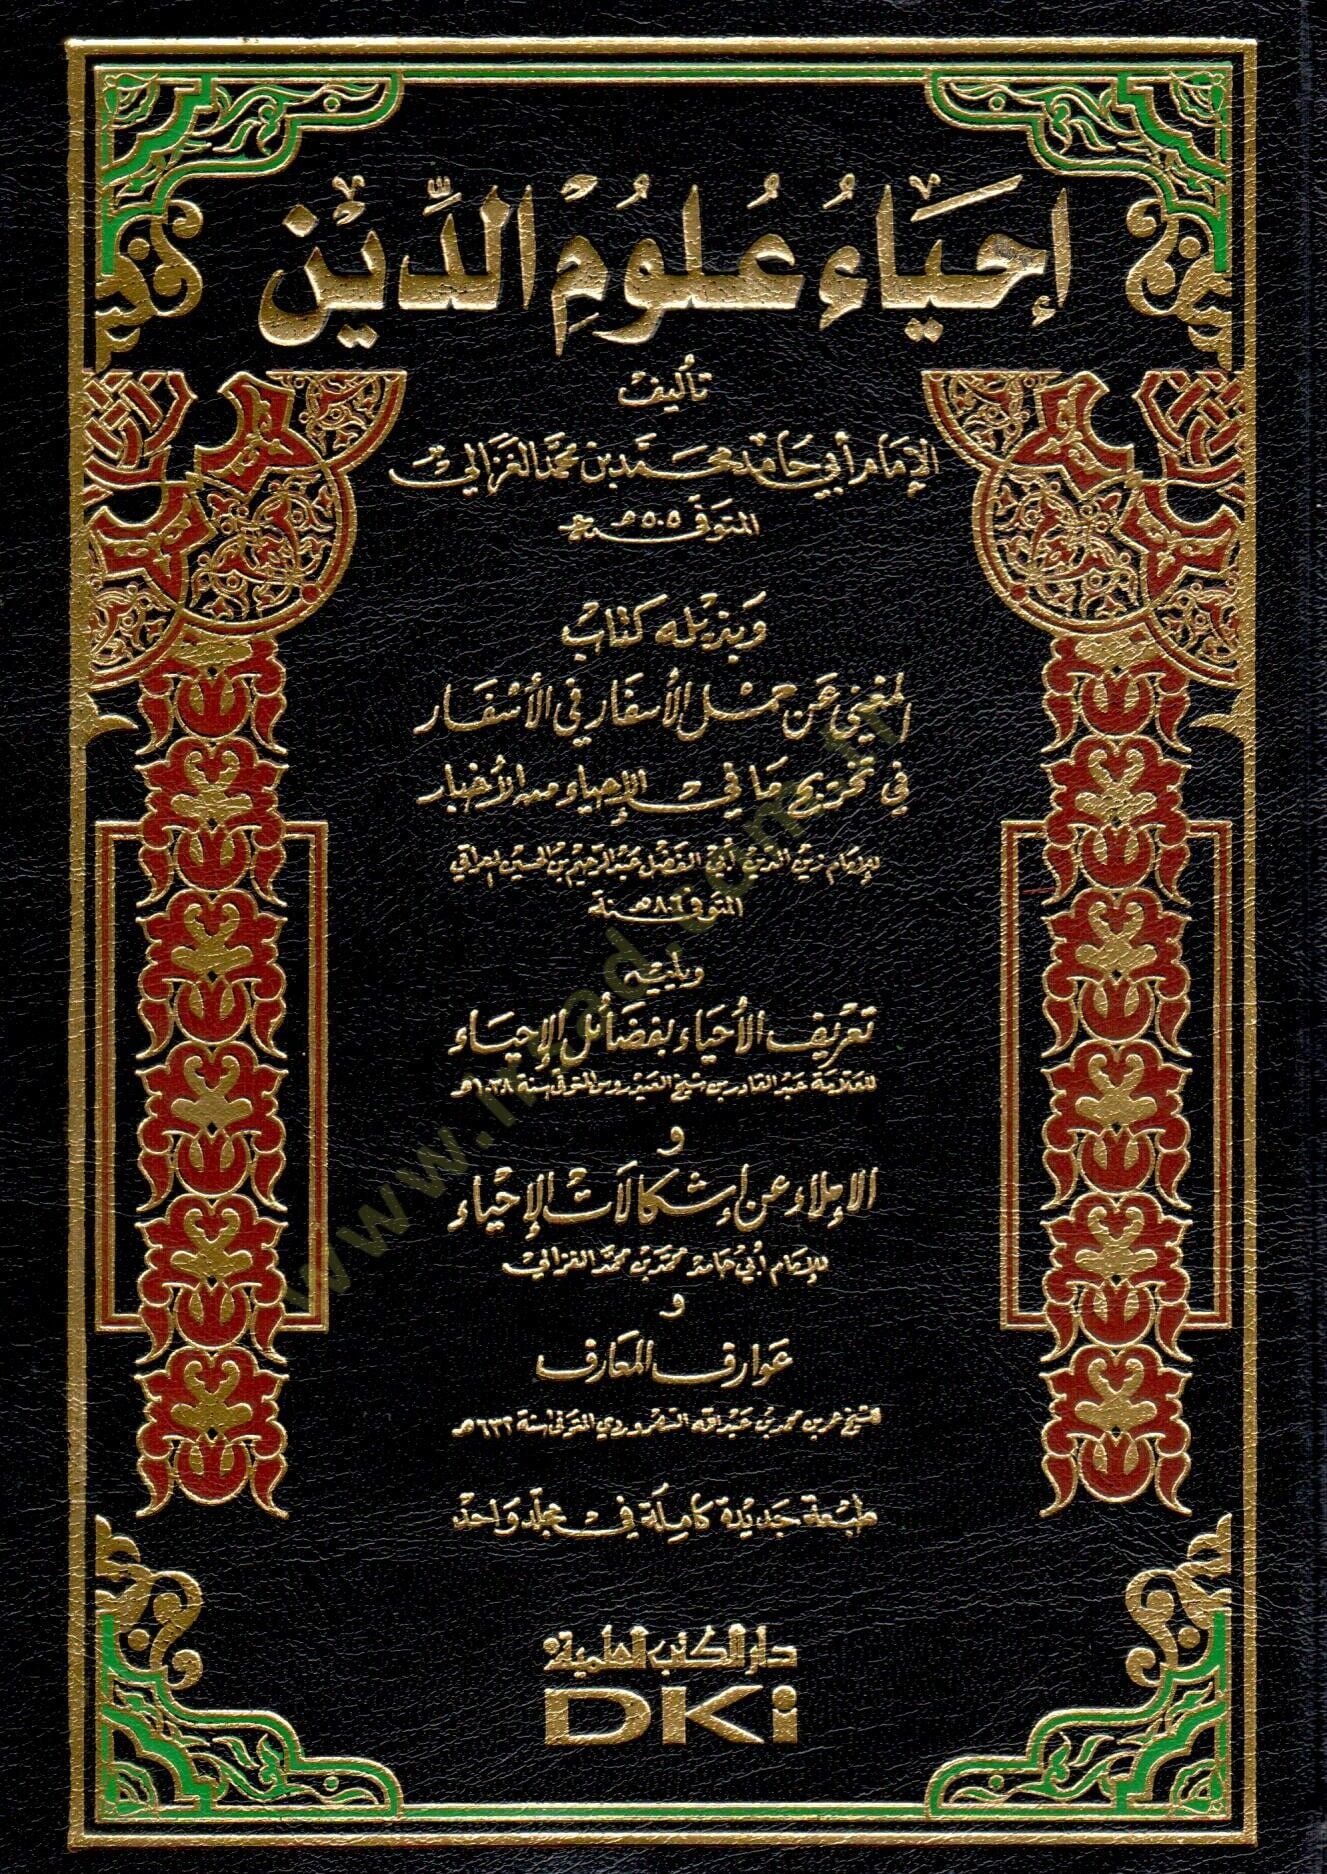 إِحْيَاءُ عُلُومِ الدِّيْن
تأليف
الإمام أبي حامد محمد بن محمد الغزالي
المتوفى سنة ٥٠٥هـ
وبذيله كتاب
المغني عن حمل الأسفار في الأسفار
في تخريج ما في الإحياء من الأخبار
للإمام زين الدين أبي الفضل عبد الرحيم بن الحسين العراقي
المتوفى سنة ٨٠٦هـ
ويليه
تعريف الأحياء بفضائل الإحياء
للعلامة عبد القادر بن شيخ العيدروس المتوفى سنة ١٠٣٨هـ
و
الإملاء عن إشكالات الإحياء
للإمام أبي حامد محمد بن محمد الغزالي
و
عوارف المعارف
للشيخ عمر بن محمد بن عبد الله السهروردي المتوفى سنة ٦٣٢هـ
طبعة جديدة كاملة في مجلد واحد
دار الكتب العلمية
DKi